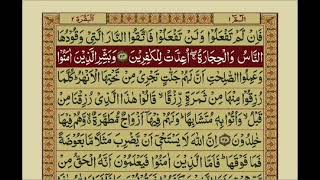 البقرة ٢
الٓمّٓ ١
فَاِنْ لَّمْ تَفْعَلُوْا وَلَنْ تَفْعَلُوْا فَاتَّقُوا النَّارَ الَّتِیْ وَقُوْدُهَا
النَّاسُ وَالْحِجَارَةُ ۖۚ اُعِدَّتْ لِلْكٰفِرِیْنَ ﴿۲۴﴾ وَبَشِّرِ الَّذِیْنَ اٰمَنُوْا
وَعَمِلُوا الصّٰلِحٰتِ اَنَّ لَهُمْ جَنّٰتٍ تَجْرِیْ مِنْ تَحْتِهَا الْاَنْهٰرُ ؕ كُلَّمَا
رُزِقُوْا مِنْهَا مِنْ ثَمَرَةٍ رِّزْقًا ۙ قَالُوْا هٰذَا الَّذِیْ رُزِقْنَا مِنْ
قَبْلُ ۙ وَاُتُوْا بِهٖ مُتَشَابِهًا ؕ وَلَهُمْ فِیْهَاۤ اَزْوَاجٌ مُّطَهَّرَةٌ ۙ وَّهُمْ فِیْهَا
خٰلِدُوْنَ ﴿۲۵﴾ اِنَّ اللّٰهَ لَا یَسْتَحْیٖۤ اَنْ یَّضْرِبَ مَثَلًا مَّا بَعُوْضَةً
فَمَا فَوْقَهَا ؕ فَاَمَّا الَّذِیْنَ اٰمَنُوْا فَیَعْلَمُوْنَ اَنَّهُ الْحَقُّ مِنْ